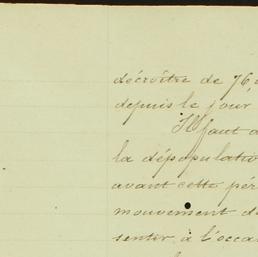 décroître de 76,
depuis le jour
Il faut a
la dépopulatio
avant cette pér
mouvement de
sentir à l'occa